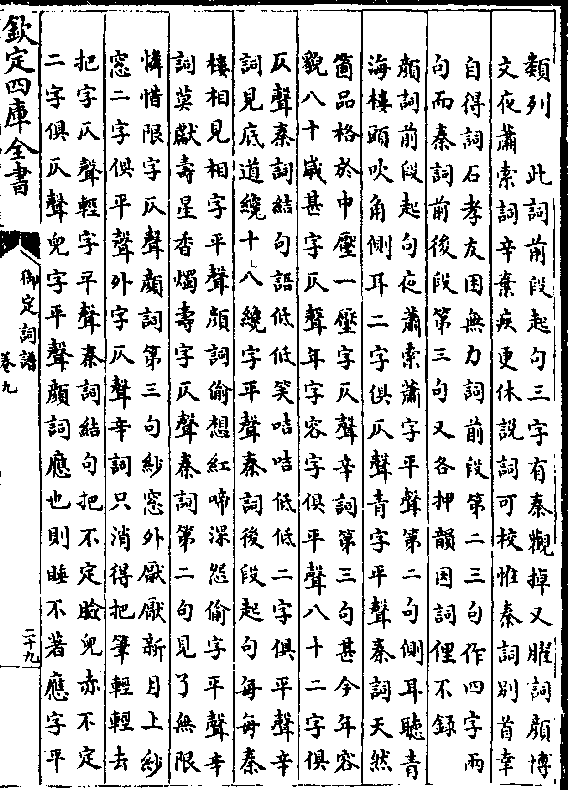 類列　此詞前段起句三字有秦觀掉又朣詞顔博
文夜蕭索詞辛棄疾更休説詞可校惟秦詞别首幸
自得詞石孝友困無力詞前段第二三句作四字兩
句而秦詞前後段第三句又各押韻因詞俚不錄
顔詞前段起句夜蕭索蕭字平聲第二句側耳聽青
海樓頭吹角側耳二字俱仄聲青字平聲秦詞天然
箇品格於中壓一壓字仄聲辛詞第三句甚今年容
貌八十歲甚字仄聲年字容字俱平聲八十二字俱
仄聲秦詞結句語低低笑咭咭低低二字俱平聲辛
詞見底道纔十八纔字平聲秦詞後段起句每每秦
樓相見相字平聲顔詞偷想紅啼深怨偷字平聲辛
詞莫獻壽星香燭壽字仄聲秦詞第二句見了無限
憐惜限字仄聲顔詞第三句紗窓外厭厭新月上紗
窓二字俱平聲外字仄聲辛詞只消得把筆輕輕去
把字仄聲輕字平聲秦詞結句把不定臉兒赤不定
二字俱仄聲兒字平聲顔詞應也則睡不著應字平
欽定四庫全書
御定詞譜
卷九
二十九